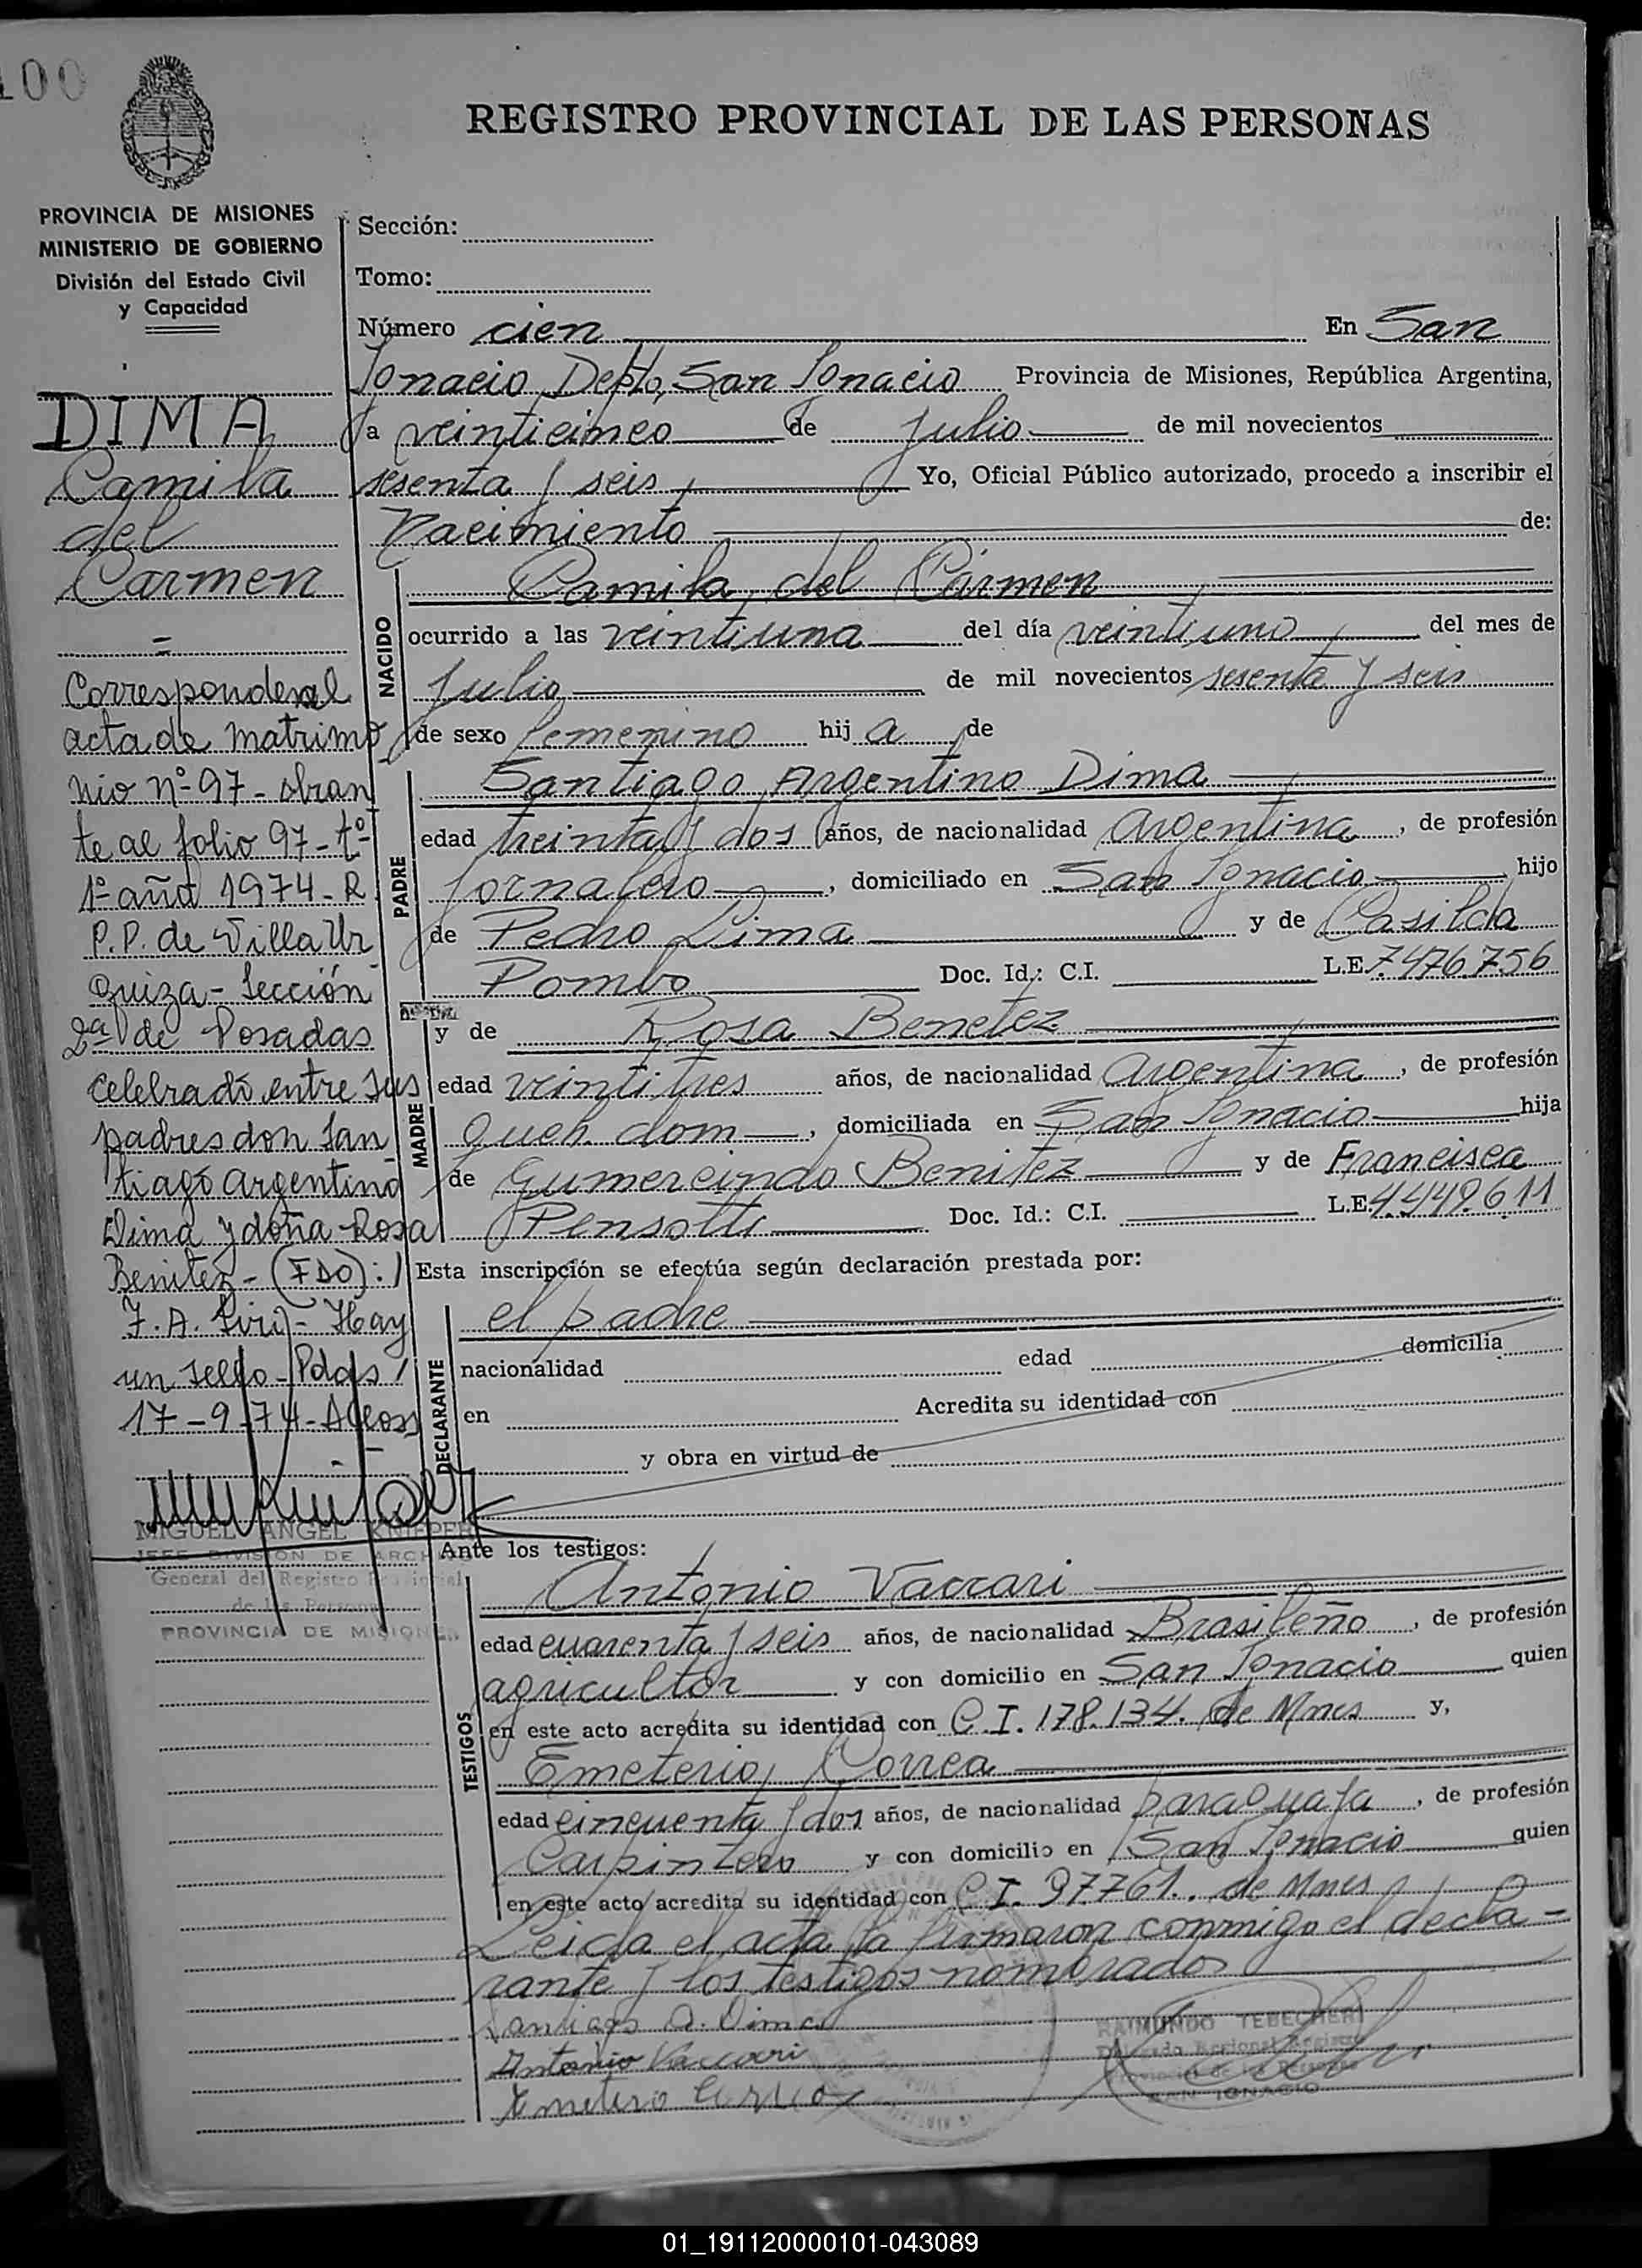 100
REGISTRO PROVINCIAL DE LAS PERSONAS
PROVINCIA DE MISIONES
MINISTERIO DE GOBIERNO
División del Estado Civil
y Capacidad
DIMA
Camila
del
Carmen
=
Corresponde al
acta de matrimo
nio nº 97 - obran
te al folio 97 - tº
1º año 1974 - R.
P.P. de Villa Ur
quiza - Sección
2ª de Posadas
celebrado entre sus
padres don San
tiago Argentino
Dima y doña Rosa
Benitez - (FDO): /
F. A. - Hay
un sello - Pdas /
17-9-74 -
MIGUEL ANGEL KNIEPER
JEFE DIVISION DE ARCH
General del Registro Provincial
de las Personas
PROVINCIA DE MISIONES
Sección:
Tomo:
Número cien En San
Ignacio, Depto, San Ignacio Provincia de Misiones, República Argentina,
a veinticinco de Julio de mil novecientos
sesenta y seis, Yo, Oficial Público autorizado, procedo a inscribir el
Nacimiento de:
NACIDO
Camila, del Carmen
ocurrido a las veintiuna del día veintiuno del mes de
Julio de mil novecientos sesenta y seis
de sexo femenino hij a de
PADRE
Santiago Argentino Dima
edad treinta y dos años, de nacionalidad Argentina, de profesión
Jornalero, domiciliado en San Ignacio hijo
de Pedro Dima y de Casilda
Pombo Doc. Id.: C.I. L.E. 7.476.756
MADRE
y de Rosa Benetez
edad veintitres años, de nacionalidad Argentina, de profesión
Queh. dom, domiciliada en San Ignacio hija
de Gumercindo Benitez y de Francisca
Pensotti Doc. Id.: C.I. L.E. 4.449.611
Esta inscripción se efectúa según declaración prestada por:
DECLARANTE
el padre
nacionalidad edad domicilia
en Acredita su identidad con
y obra en virtud de
Ante los testigos:
TESTIGOS
Antonio Vaccari
edad cuarenta y seis años, de nacionalidad Brasileño, de profesión
agricultor y con domicilio en San Ignacio quien
en este acto acredita su identidad con C.I. 178.134. de Mnes y,
Emeterio, Correa
edad cincuenta y dos años, de nacionalidad paraguaya, de profesión
Carpintero y con domicilio en San Ignacio quien
en este acto acredita su identidad con C.I. 97761. de Mnes
Leida el acta la firmaron conmigo el decla-
rante y los testigos nombrados
Santiago A. Dima
Antonio Vaccari
Emeterio Correa
RAIMUNDO TEBECHERI
Delegado Regional Registro
Provincial de las Personas
SAN IGNACIO
01_191120000101-043089